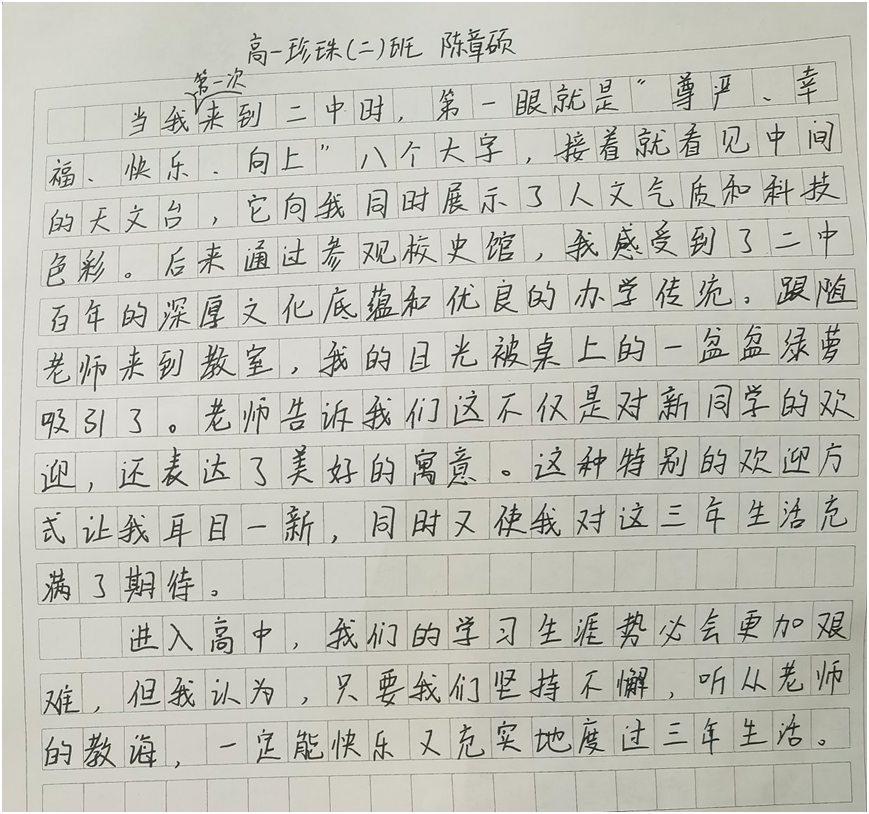 高一珍珠(二)班 陈章硕
第一次
当我来到二中时，第一眼就是“尊严、幸
福、快乐、向上”八个大字，接着就看见中间
的天文台，它向我同时展示了人文气质和科技
色彩。后来通过参观校史馆，我感受到了二中
百年的深厚文化底蕴和优良的办学传统。跟随
老师来到教室，我的目光被桌上的一盆盆绿萝
吸引了。老师告诉我们这不仅是对新同学的欢
迎，还表达了美好的寓意。这种特别的欢迎方
式让我耳目一新，同时又使我对这三年生活充
满了期待。
进入高中，我们的学习生涯势必会更加艰
难，但我认为，只要我们坚持不懈，听从老师
的教诲，一定能快乐又充实地度过三年生活。